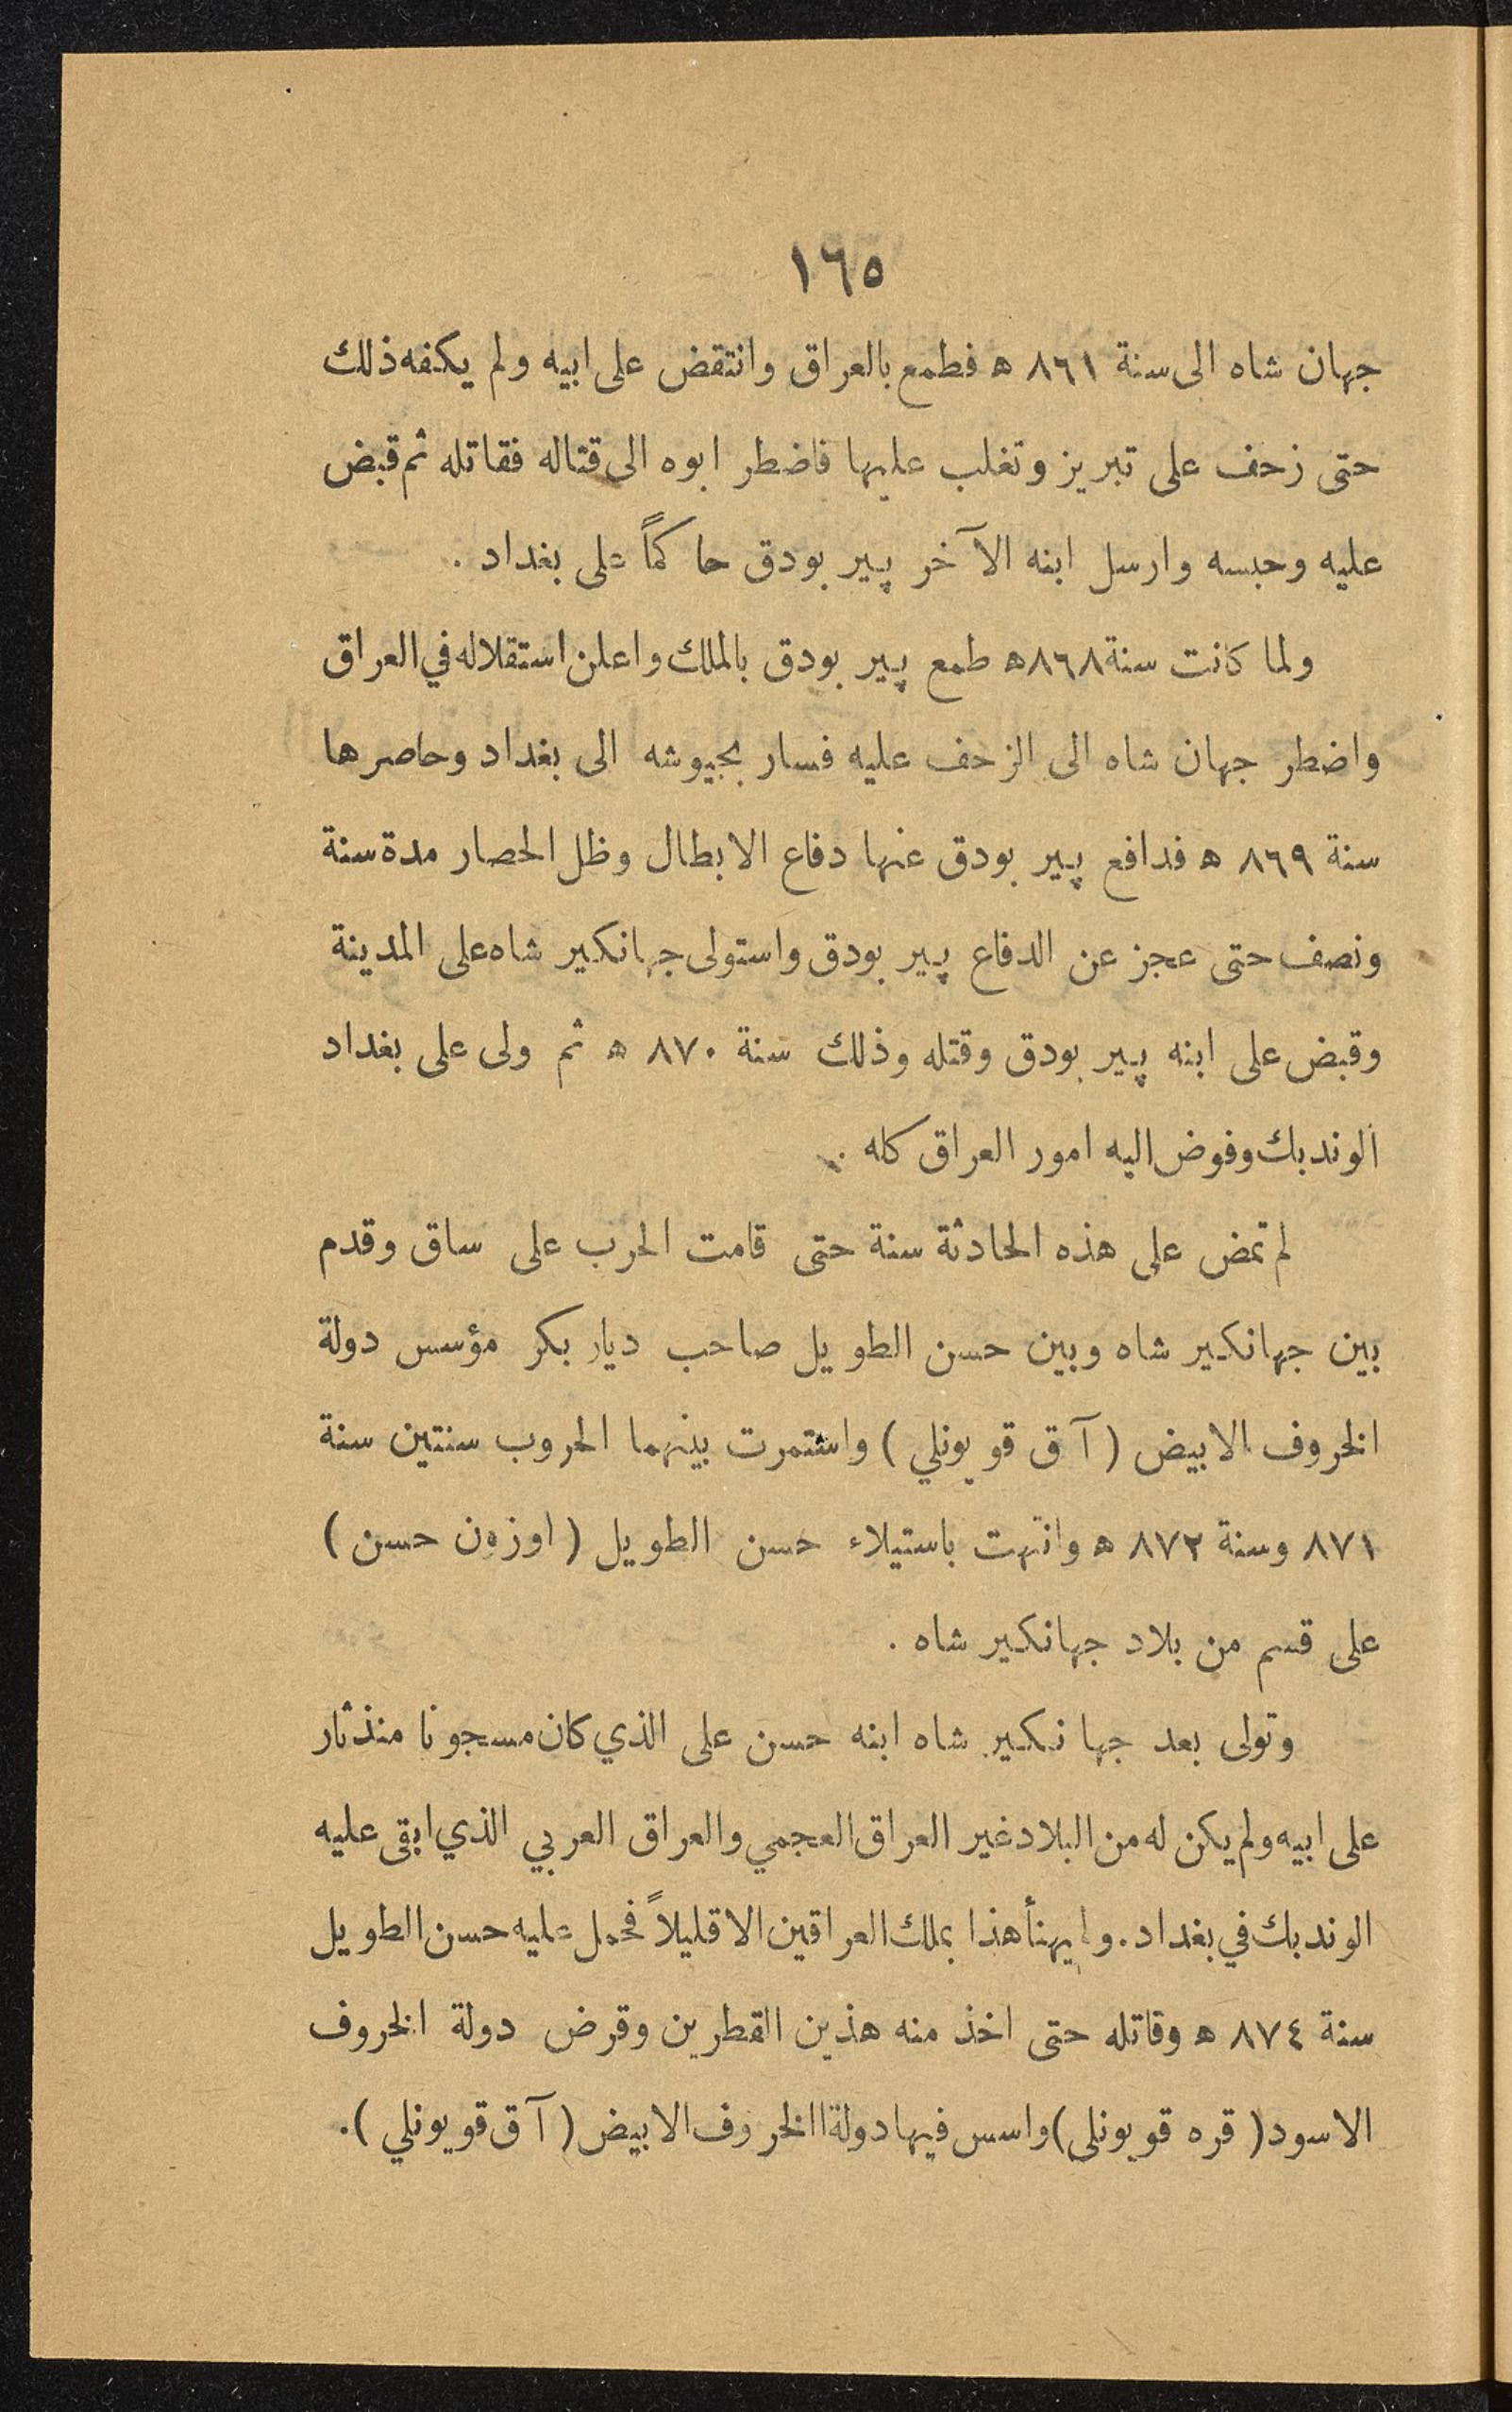 ١٦٥
جهان شاه الى سنة ٨٦١ ه فطمع بالعراق وانتقض على ابيه ولم يكفه ذلك
حتى زحف على تبريز وتغلب عليها فاضطر ابوه الى قتاله فقاتله ثم قبض
عليه وحبسه وارسل ابنه الآخر پير بودق حاكماً على بغداد .
ولما كانت سنة ٨٦٨ ه طمع پير بودق بالملك واعلن استقلاله في العراق
واضطر جهان شاه الى الزحف عليه فسار بجيوشه الى بغداد وحاصرها
سنة ٨٦٩ ه فدافع پير بودق عنها دفاع الابطال وظل الحصار مدة سنة
ونصف حتى عجز عن الدفاع پير بودق واستولى جهانكير شاه على المدينة
وقبض على ابنه پير بودق وقتله وذلك سنة ٨٧٠ ه ثم ولى على بغداد
الوند بك وفوض اليه امور العراق كله .
لم تمض على هذه الحادثة سنة حتى قامت الحرب على ساق وقدم
بين جهانكير شاه وبين حسن الطويل صاحب ديار بكر مؤسس دولة
الخروف الابيض ( آق قويونلي ) واستمرت بينهما الحروب سنتين سنة
٨٧١ وسنة ٨٧٢ ه وانتهت باستيلاء حسن الطويل ( اوزون حسن )
على قسم من بلاد جهانكير شاه .
وتولى بعد جهانكير شاه ابنه حسن على الذي كان مسجونا منذ ثار
على ابيه ولم يكن له من البلاد غير العراق العجمي والعراق العربي الذي ابقى عليه
الوند بك في بغداد . ولم يهنأ هذا بملك العراقين الا قليلاً فحمل عليه حسن الطويل
سنة ٨٧٤ ه وقاتله حتى اخذ منه هذين القطرين وقرض دولة الخروف
الاسود ( قره قويونلى ) واسس فيها دولة االخروف الابيض ( آق قويونلي ) .